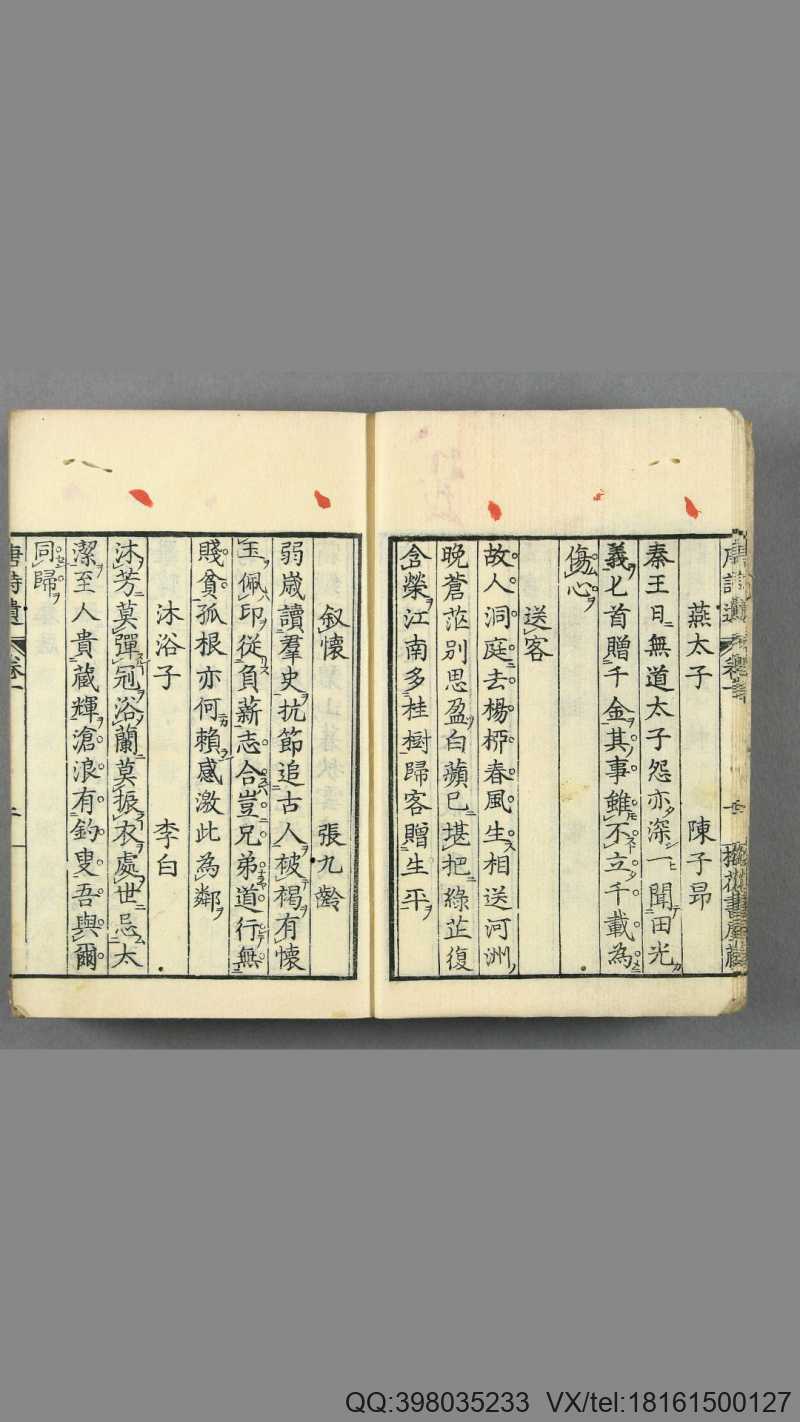 燕太子 陳子昂
秦王日無道太子怨亦深一聞田光
義匕首贈千金其事雖不立千載為
傷心
送客
故人洞庭去楊桺春風生相送河洲
晚蒼茫別思盈白蘋已堪把綠芷復
含榮江南多桂樹歸客贈生平
叙懷 張九齡
弱歲讀羣史抗節追古人被褐有懷
玉佩印從負薪志合豈兄弟道行無
賤貧孤根亦何賴感激此為鄰
沐浴子 李白
沐芳莫彈冠浴蘭莫振衣處世忌太
潔至人貴藏輝滄浪有釣叟吾與爾
同歸
唐詩遺 卷一
QQ:398035233 VX/tel:18161500127